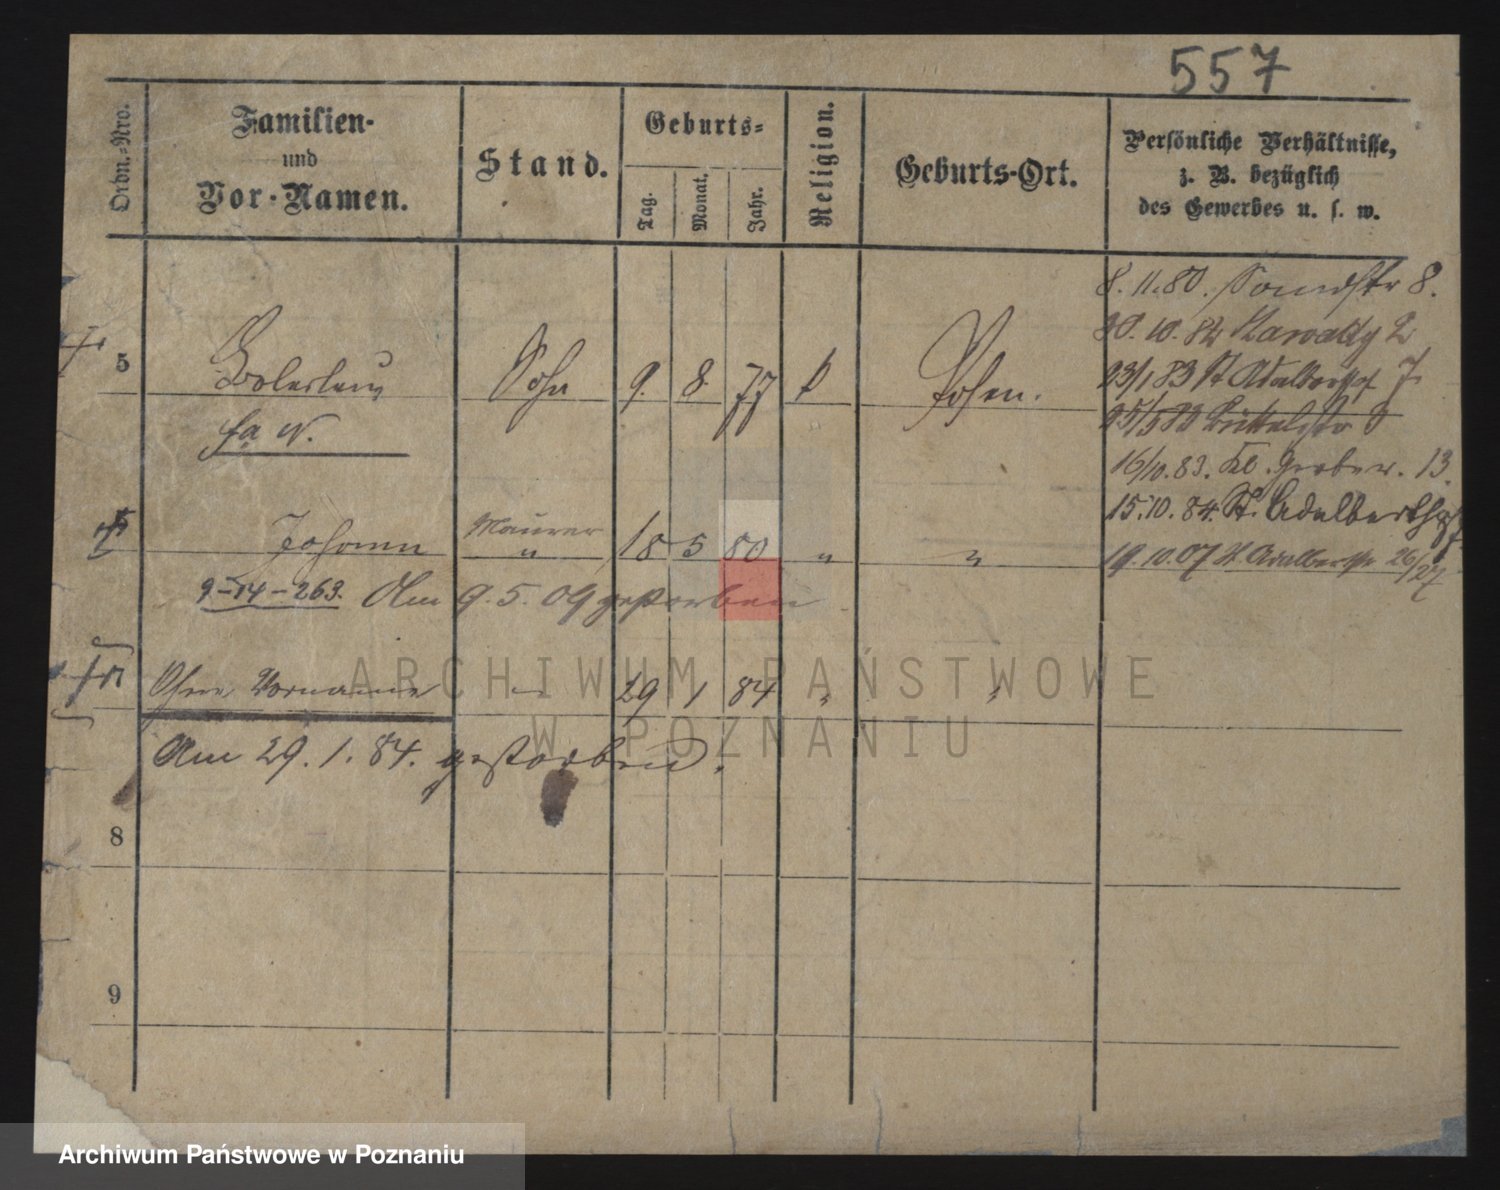 557
Ordn.-Nro.
Familien-
und
Vor-Namen.
Stand.
Geburts-
Tag.
Monat.
Jahr.
Religion.
Geburts-Ort.
Persönliche Verhältnisse,
z. B. bezüglich
des Gewerbes u. s. w.
8. 11. 80. Sandstr 8.
30. 10. 82 Wawalky 2
5 Boleslaus Sohn 9. 8. 77 k Posen.
23/1 83 St Adalbertst 7.
25/5 83 Büttelstr
16/10. 83. Kl. Gerber. 13.
15. 10. 84. St. Adalbertstr
Maurer
Johann " 18 5 80 " "
19. 10. 07 St Adalbertstr 26/27
9-14-263. Am 9. 5. 09 gestorben
Ohne Vorname - 29 1 84 " "
Am 29. 1. 84. gestorben.
8
9
ARCHIWUM PAŃSTWOWE
W POZNANIU
Archiwum Państwowe w Poznaniu